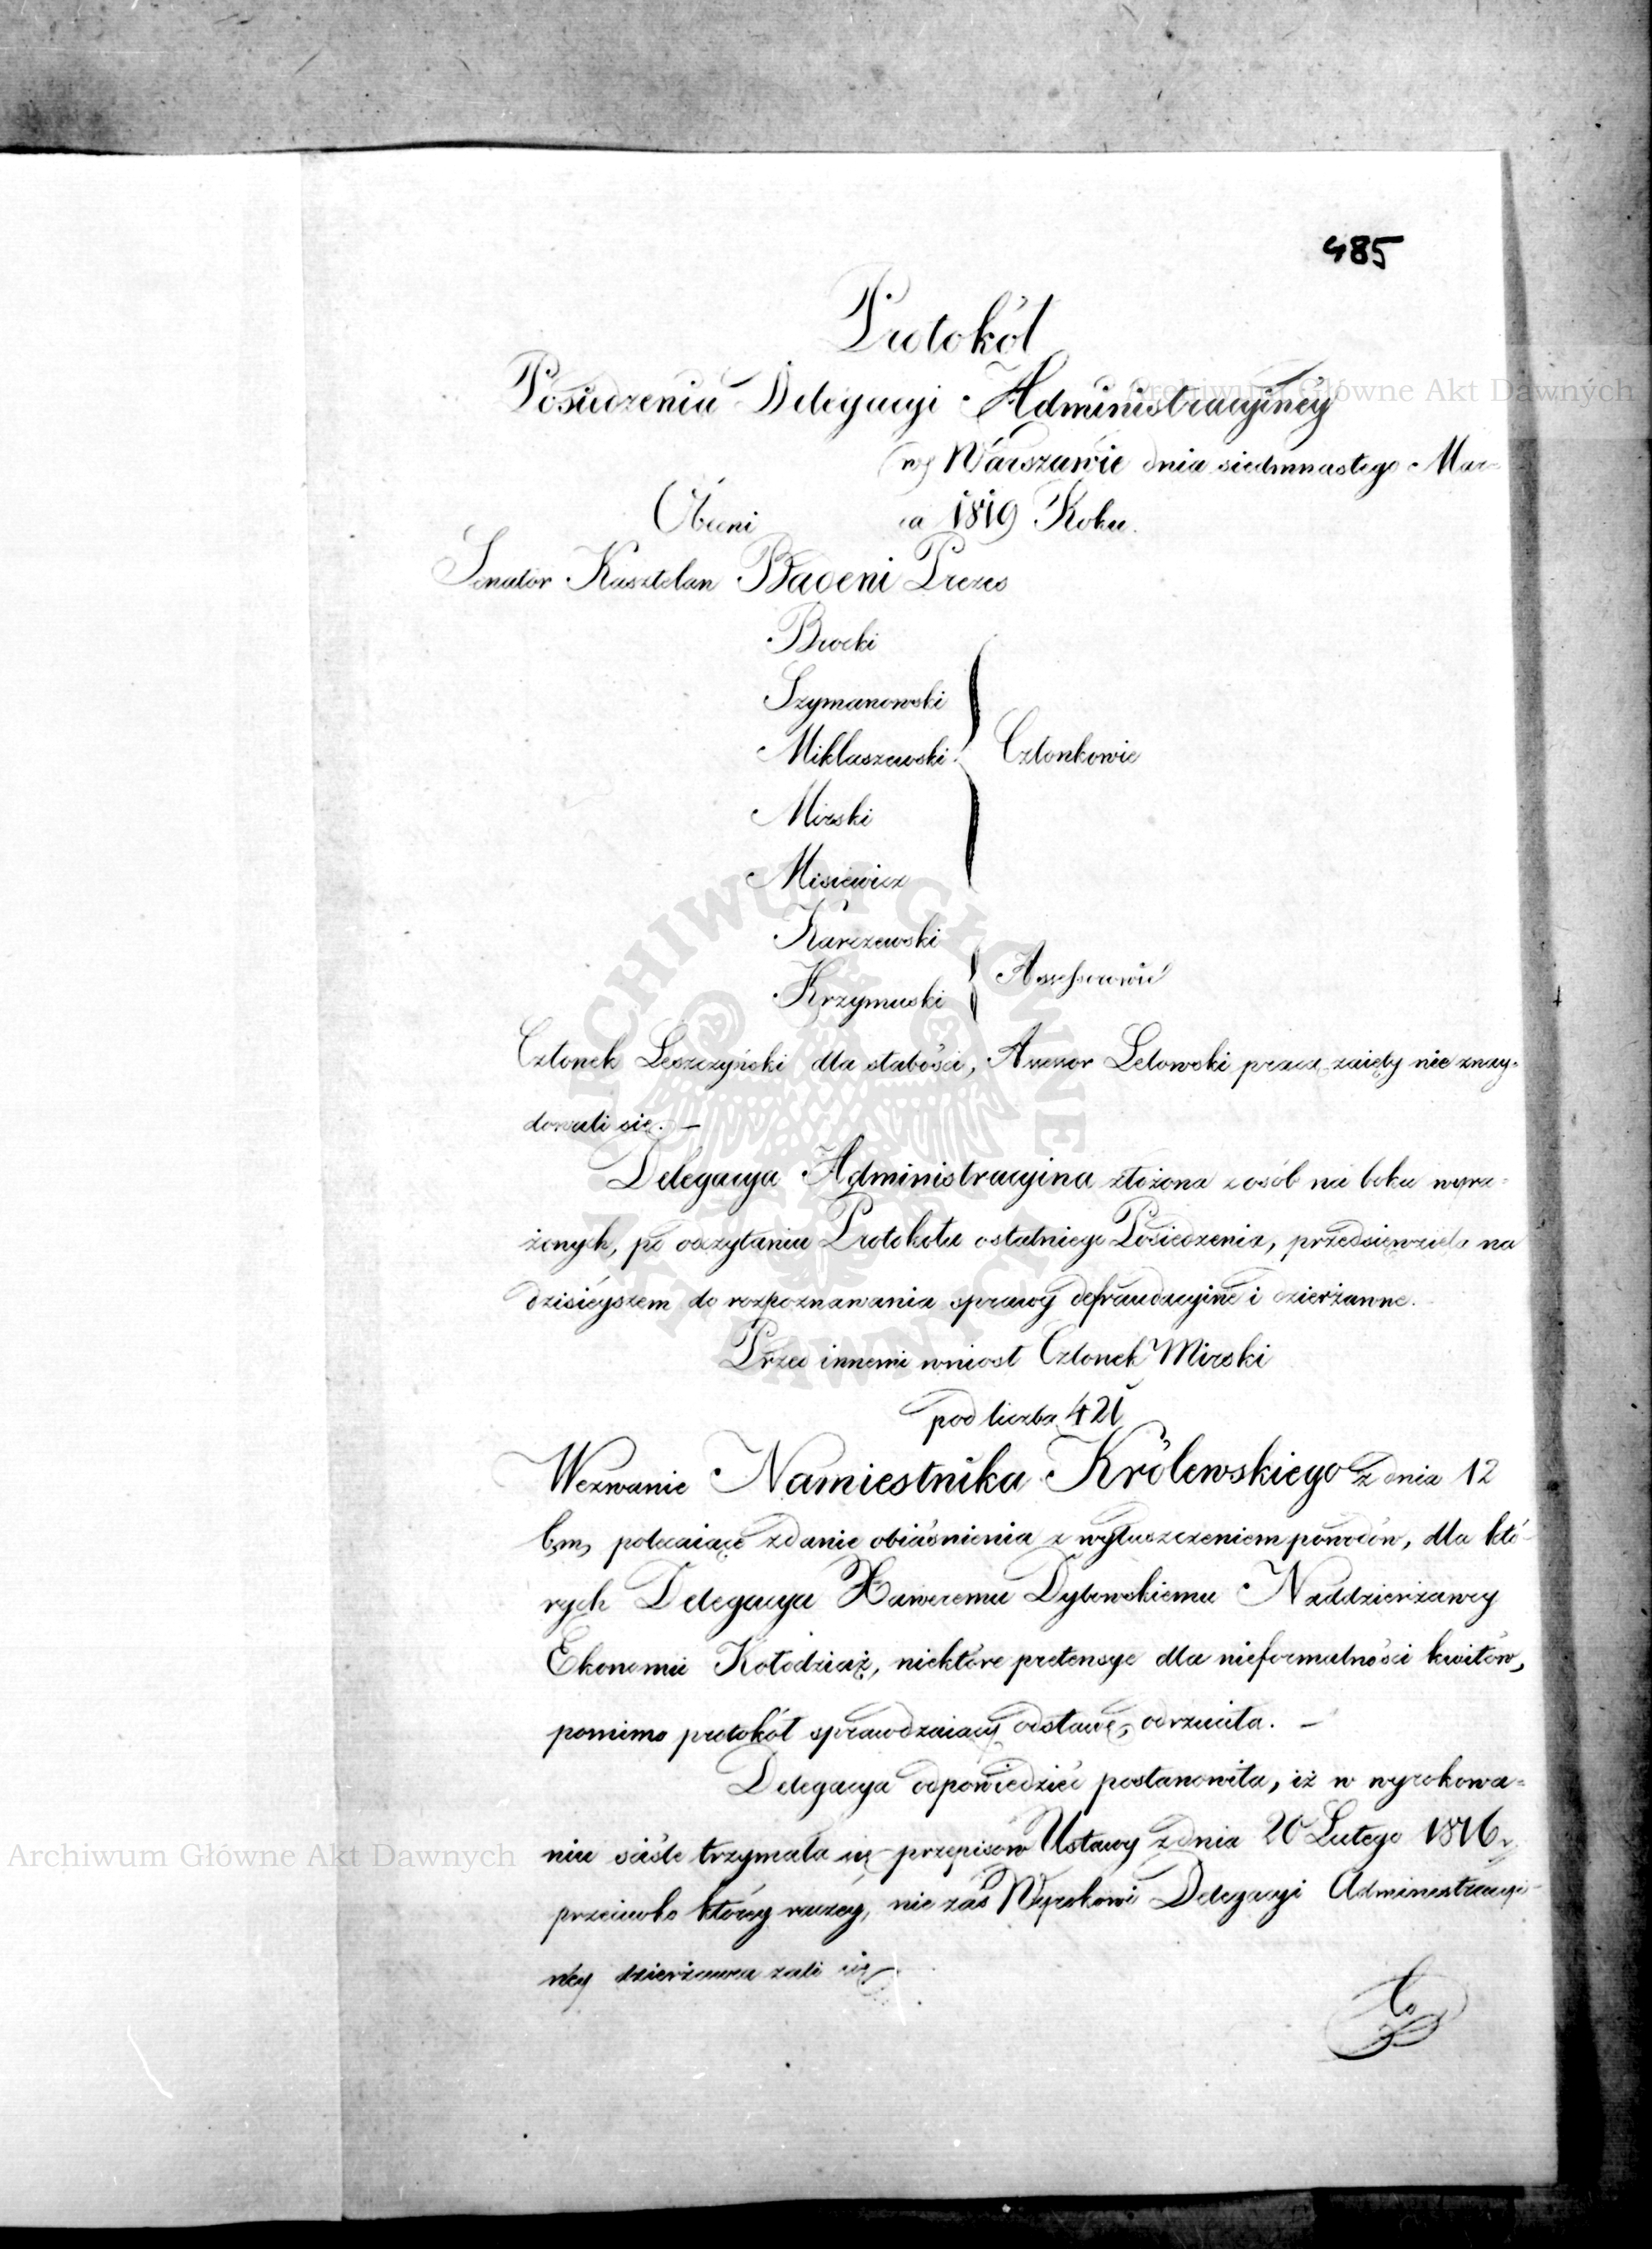 485
Protokół
Posiedzenia Delegacyi Administracyiney
w Warszawie dnia siedmnastego Mar-
Obecni ca 1819 Roku.
Senator Kasztelan Badeni Prezes
Brocki
Szymanowski
Miklaszewski Członkowie
Mirski
Misiewicz
Karczewski
Krzymuski Assessorowie
Członek Leszczyński dla słabości, Assessor Letowski pracą zaięty nie znay-
dowali się. —
Delegacya Administracyina złożona z osób na boku wyra-
żonych, po odczytaniu Protokołu ostatniego Posiedzenia, przedsięwzięła na
dzisieyszem do rozpoznawania sprawy defraudacyine i dzierżawne.
Przed innemi wniosł Członek Mirski
pod liczbą 421
Wezwanie Namiestnika Królewskiego z dnia 12
b.m. polecaiące zdanie obiaśnienia z wyłuszczeniem powodów, dla któ-
rych Delegacya Xaweremu Dybowskiemu Naddzierżawcy
Ekonomii Kołodziąż, niektóre pretensye dla nieformalności kwitów,
pomimo protokół sprawdzaiący odstawę, odrzuciła. —
Delegacya odpowiedzieć postanowiła, iż w wyrokowa-
niu ściśle trzymała się przepisów Ustawy z dnia 20 Lutego 1816 r.
przeciwko którey raczey, nie zaś Wyrokowi Delegacyi Administracyi-
ney dzierżawca żali się.
Archiwum Główne Akt Dawnych
Archiwum Główne Akt Dawnych
ARCHIWUM GŁÓWNE AKT DAWNYCH